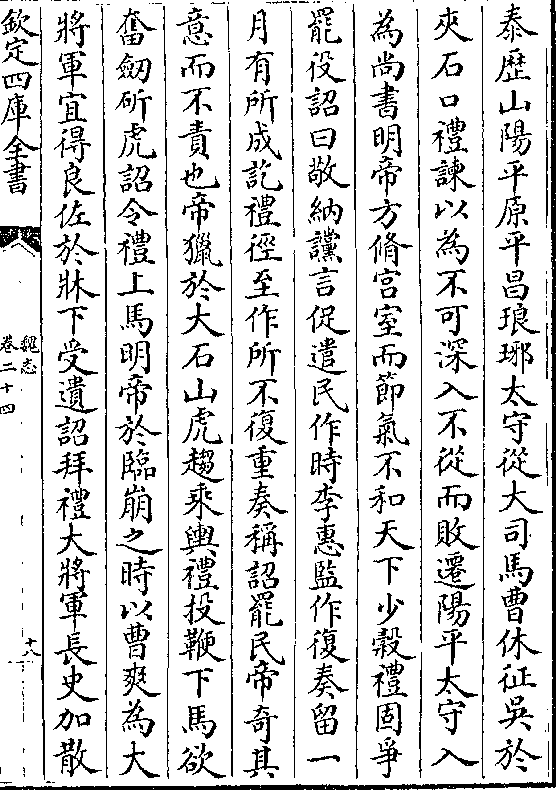 泰歴山陽平原平昌琅琊太守從大司馬曹休征吳於
夾石口禮諫以為不可深入不從而敗遷陽平太守入
為尚書明帝方脩宮室而節氣不和天下少穀禮固爭
罷役詔曰敬納讜言促遣民作時李惠監作復奏留一
月有所成訖禮徑至作所不復重奏稱詔罷民帝奇其
意而不責也帝獵於大石山虎趨乘輿禮投鞭下馬欲
奮劒斫虎詔令禮上馬明帝於臨崩之時以曹爽為大
將軍宜得良佐於牀下受遺詔拜禮大將軍長史加散
欽定四庫全書
魏志
卷二十四
十八